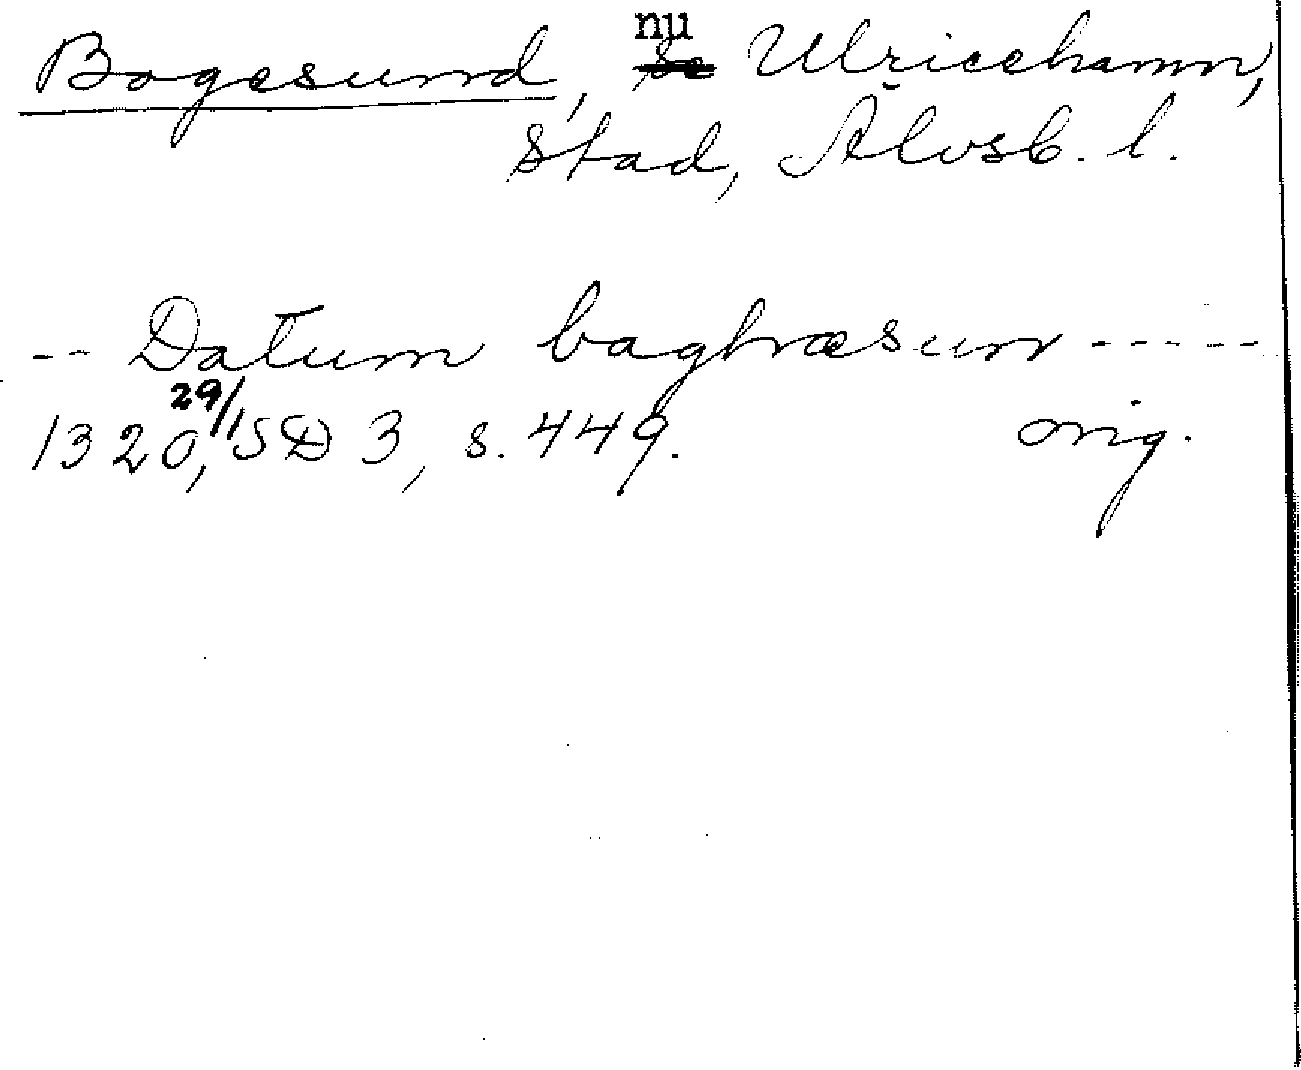 Bogesund, nu Ulricehamn,
stad, Älvsb. l.
-- Datum baghræsun -----
1320 29/1, SD 3, s. 449. orig.